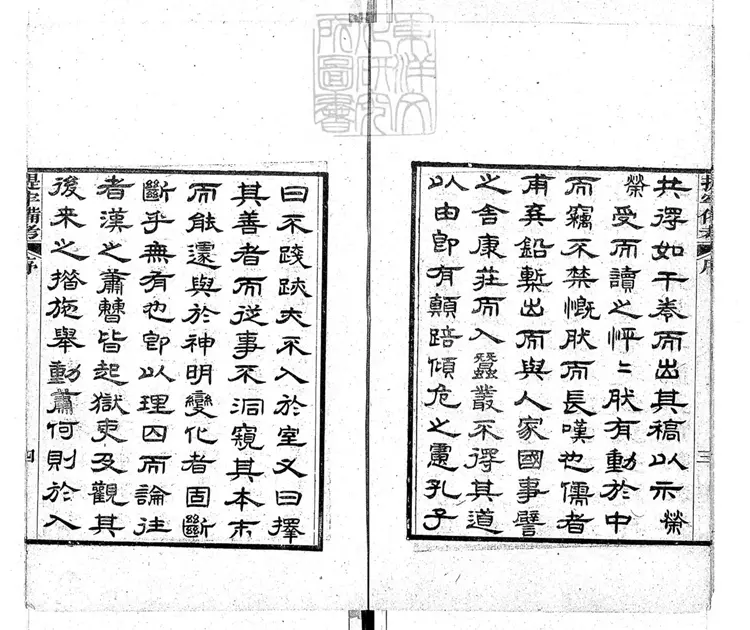 東洋文
化研究
所圖書
提牢備考
序
三
共得如干卷而出其稿以示榮
榮受而讀之怦〻肰有動於中
而竊不禁慨肰而長嘆也儒者
甫棄鉛槧出而與人家國事譬
之舍康莊而入蠶叢不得其道
以由即有顛踣傾危之慮孔子
曰不踐跡亦不入於室又曰擇
其善者而從事不洞窺其本末
而能遷與於神明變化者固斷
斷乎無有也即以理囚而論往
者漢之蕭曹皆起獄吏及觀其
後来之措施舉動蕭何則於入
提牢備考
序
四